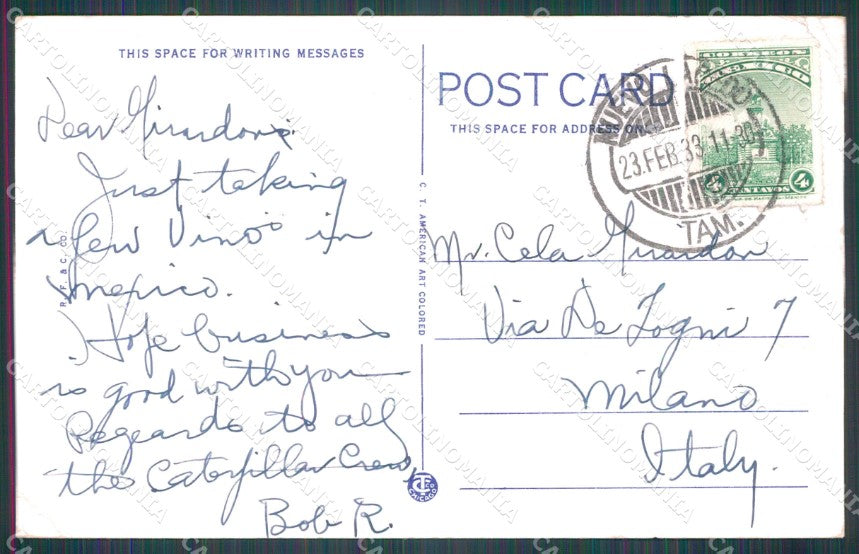 THIS SPACE FOR WRITING MESSAGES
POST CARD
THIS SPACE FOR ADDRESS ONLY
Dear Girardon:
Just taking
a few Vino's in
Mexico.
Hope business
is good with you
Regards to all
the Caterpillar Crew,
Bob R.
R. F. & C. CO.
C. T. AMERICAN ART COLORED
CHICAGO
CORREOS
MEXICO
4 CENTAVOS 4
NUEVO LAREDO
23.FEB.39.11-30
TAM.
Mr. Cela Girardon
Via De Togni 7
Milano
Italy.
CARTOLINOMANIA